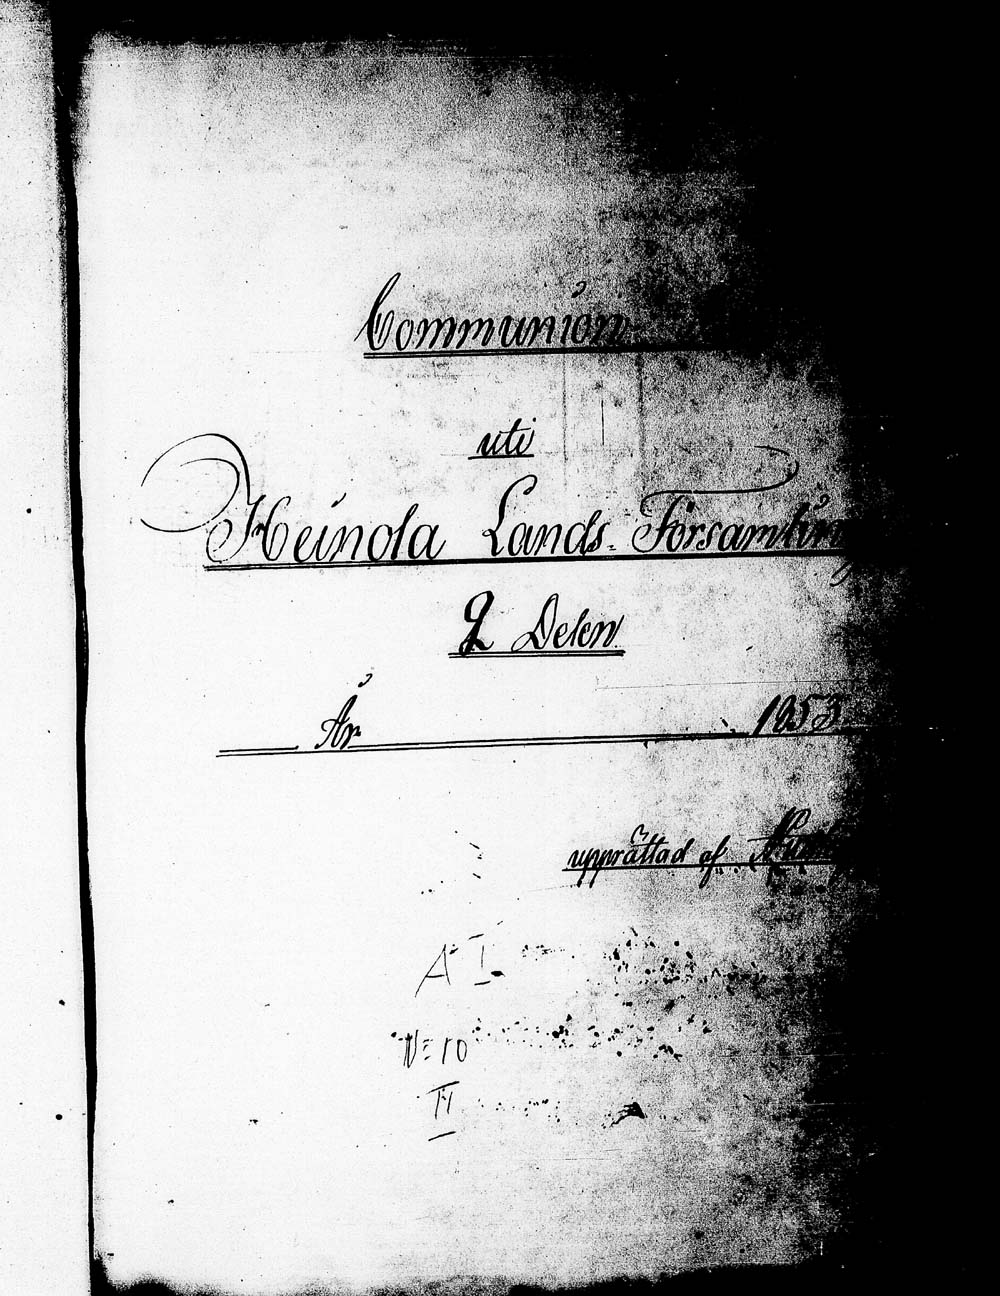 Communion
uti
Heinola Lands-Församling
2 Delen.
År 1853
upprättad af
A I
N=10
II